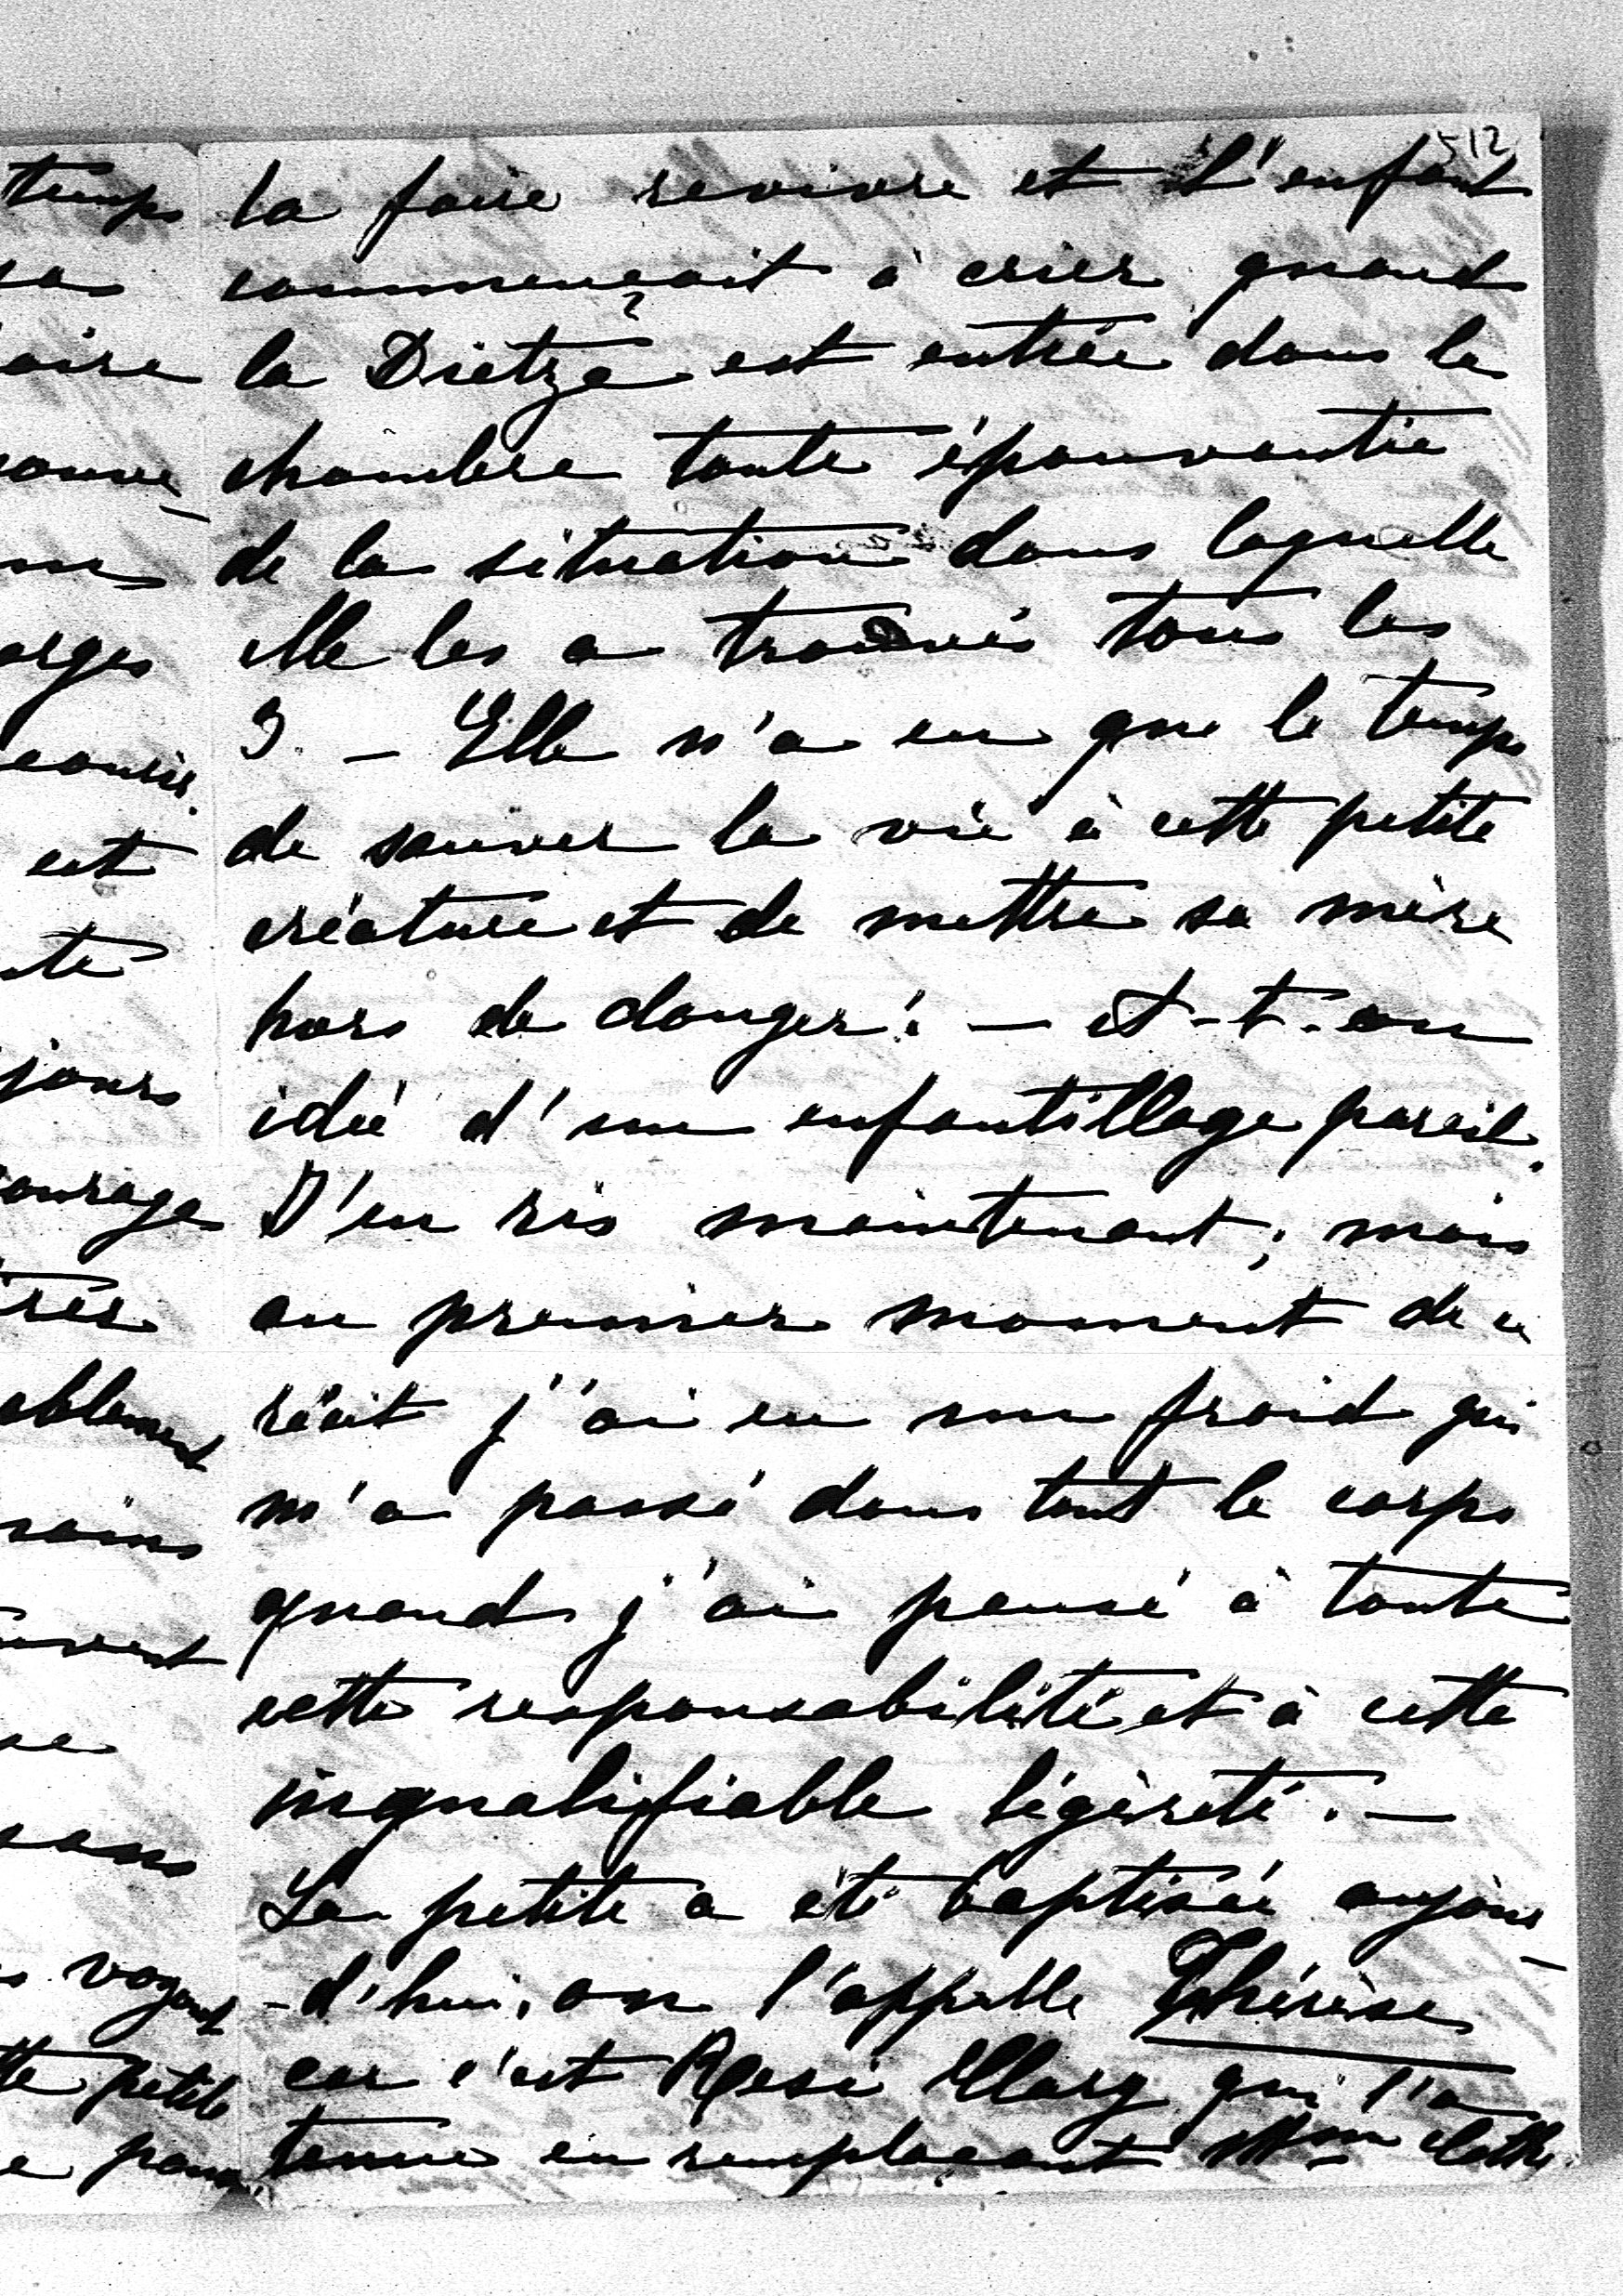 512
la faire revivre et l'enfant
commençait à crier quand
la Dietze est entrée dans la
chambre toute épouvantée
de la situation dans laquelle
elle les a trouvés tous les
3. — Elle n'a eu que le temps
de sauver la vie à cette petite
créature et de mettre sa mère
hors de danger! — et-t-on
idée d'un enfantillage pareil.
J'en ris maintenant; mais
au premier moment de ce
récit j'ai eu un froid qui
m'a passé dans tout le corps
quand j'ai pensé à toute
cette responsabilité et à cette
inqualifiable légèreté. —
La petite a été baptisée aujour-
-d'hui, on l'appelle Thérèse
car c'est Resi Marg qui l'a
tenue en remplaçant Mme
temps
sa
oire
orges
est
te
jours
ourage
très
ablement
voyant
petite